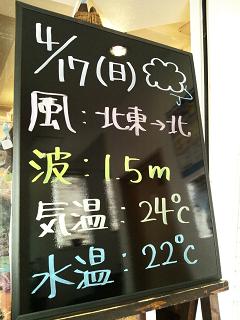 4/17(日)
風:北東→北
波:1.5m
気温:24℃
水温:22℃